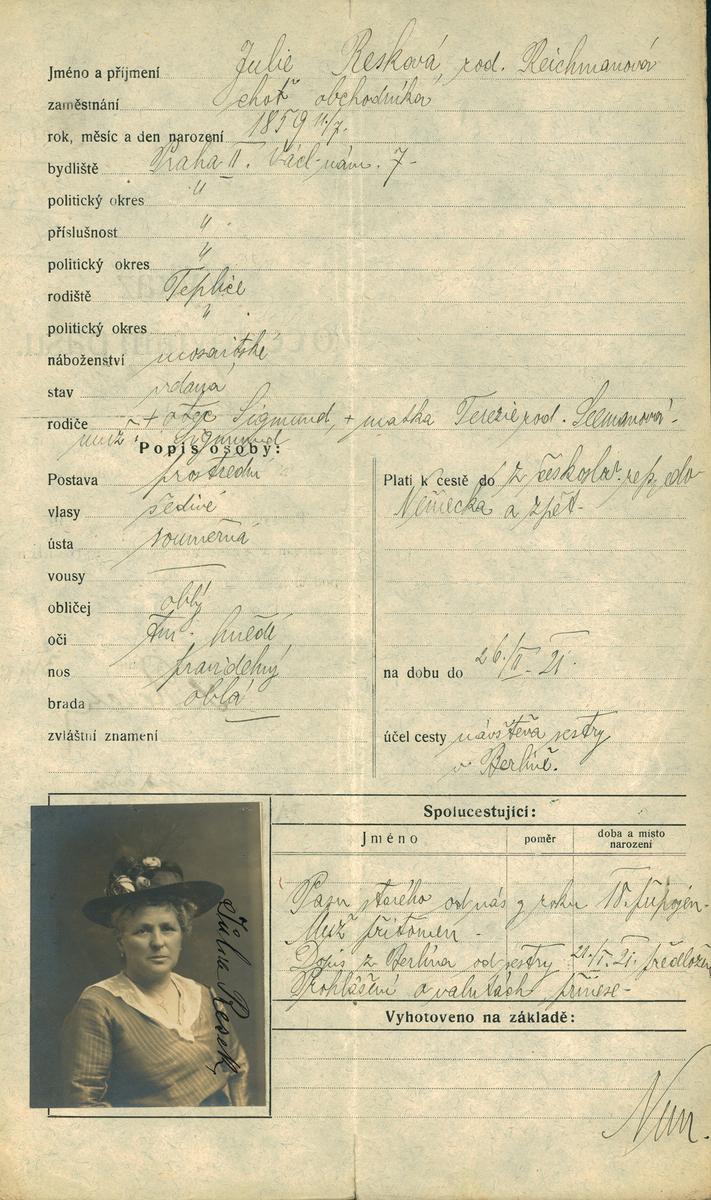 Jméno a příjmení Julie Resková, rod. Reichmanová
zaměstnání choť obchodníka
rok, měsíc a den narození 1859 11/7.
bydliště Praha II. Václ. nám. 7-
politický okres "
příslušnost "
politický okres "
rodiště Teplice
politický okres "
náboženství mosaitské
stav vdaná
rodiče + otec Sigmund, + matka Terezie rod. Seemanová-
muž Sigmund
Popis osoby:
Postava prostřední
vlasy šedivé
ústa souměrná
vousy —
obličej oblý
oči tm. hnědé
nos pravidelný
brada oblá
zvláštní znamení
Platí k cestě do z českoslov. rep. do
Německa a zpět-
na dobu do 26/II-21.
účel cesty návštěva sestry
v Berlíně.
Spolucestující:
Jméno poměr doba a místo narození
Pasu starého od nás z roku 18.
Muž přítomen-
Dopis z Berlína od sestry 21. předložen
Prohlášení o valutách přinese-
Vyhotoveno na základě:
Julie Resek